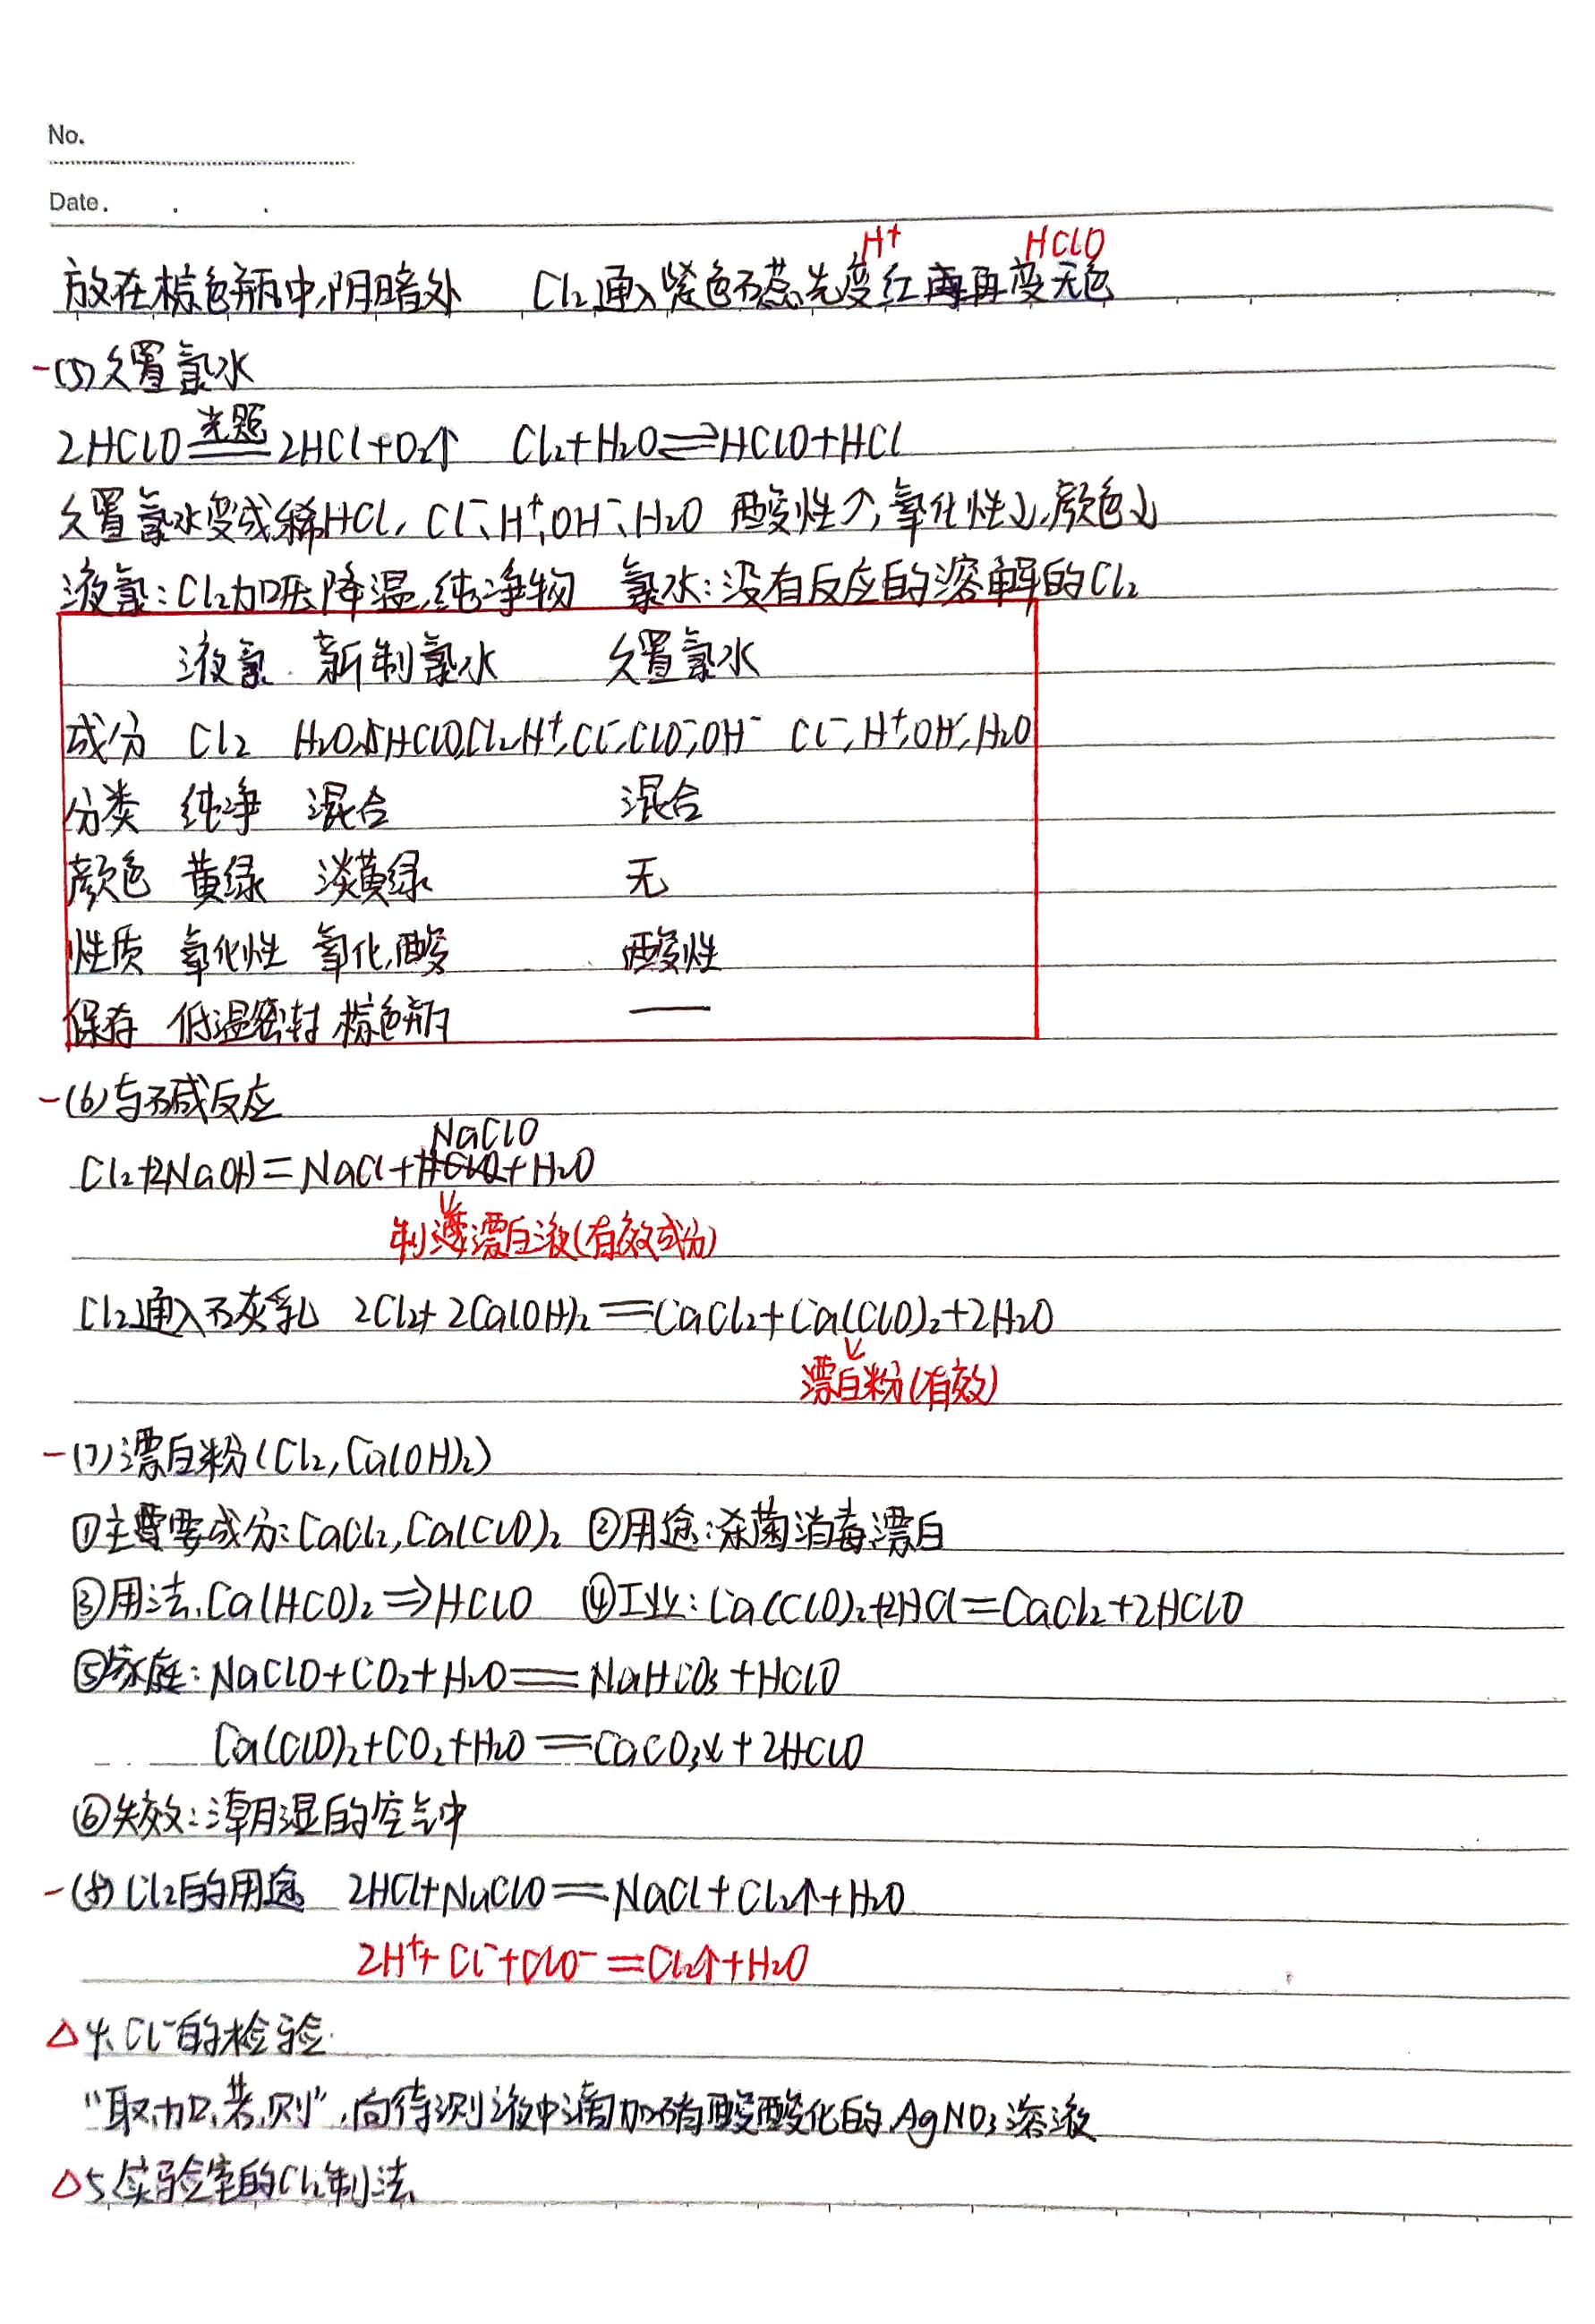 No.
Date.
H⁺ HClO
放在棕色瓶中,阴暗处 Cl₂通入紫色石蕊,先变红再变无色
(5)久置氯水
2HClO 光照 2HCl+O₂↑ Cl₂+H₂O⇌HClO+HCl
久置氯水变成稀HCl, Cl⁻、H⁺、OH⁻、H₂O 酸性↑,氧化性↓,颜色↓
液氯:Cl₂加压降温,纯净物 氯水:没有反应的溶解的Cl₂
液氯 新制氯水 久置氯水
成分 Cl₂ H₂O,HClO,Cl₂,H⁺,Cl⁻,ClO⁻,OH⁻ Cl⁻,H⁺,OH⁻,H₂O
分类 纯净 混合 混合
颜色 黄绿 淡黄绿 无
性质 氧化性 氧化,酸 酸性
保存 低温密封 棕色瓶 —
(6)与碱反应
NaClO
Cl₂+2NaOH=NaCl+HClO+H₂O
制漂白液(有效成份)
Cl₂通入石灰乳 2Cl₂+2Ca(OH)₂=CaCl₂+Ca(ClO)₂+2H₂O
漂白粉(有效)
(7)漂白粉(Cl₂,Ca(OH)₂)
①主要成分:CaCl₂,Ca(ClO)₂ ②用途:杀菌消毒漂白
③用法,Ca(HCO)₂⇒HClO ④工业:Ca(ClO)₂+2HCl=CaCl₂+2HClO
⑤家庭:NaClO+CO₂+H₂O=NaHCO₃+HClO
Ca(ClO)₂+CO₂+H₂O=CaCO₃↓+2HClO
⑥失效:潮湿的空气中
(8)Cl₂的用途 2HCl+NaClO=NaCl+Cl₂↑+H₂O
2H⁺+Cl⁻+ClO⁻=Cl₂↑+H₂O
△4、Cl⁻的检验
“取,加,若,则”,向待测液中滴加硝酸酸化的AgNO₃溶液
△5、实验室的Cl₂制法